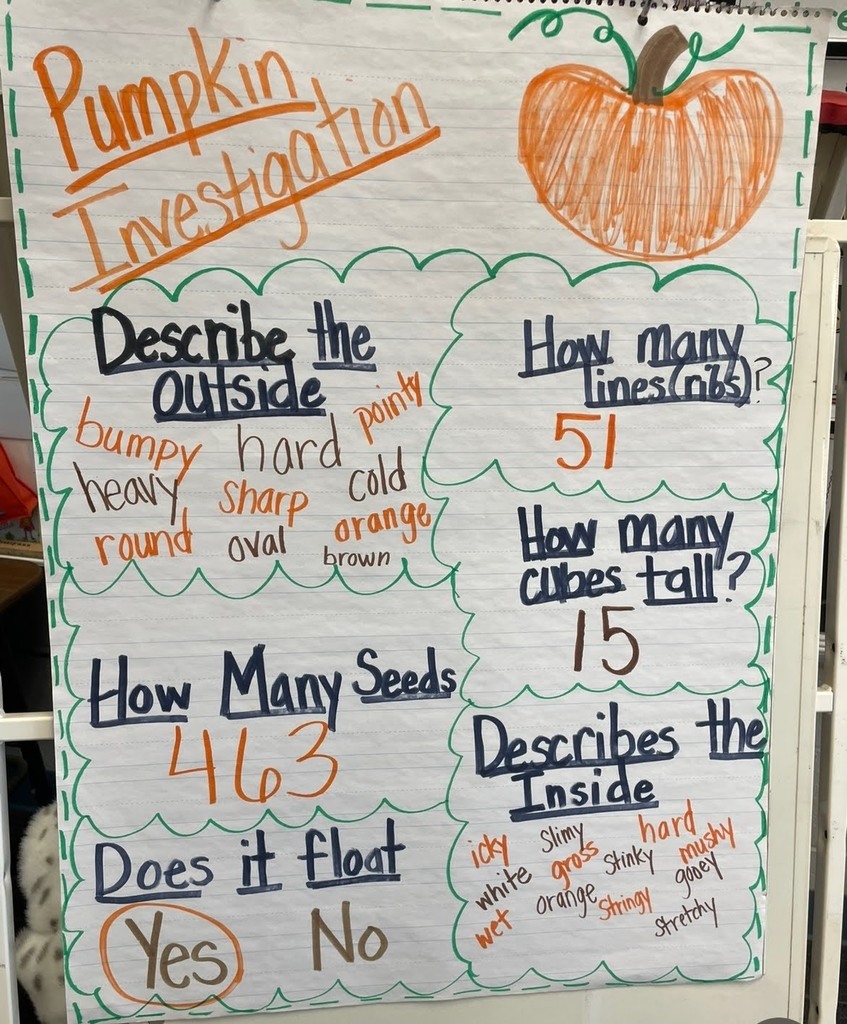 Pumpkin
Investigation
Describe the
outside
bumpy hard pointy
heavy sharp cold
round oval orange
brown
How many
lines(ribs)?
51
How many
cubes tall?
15
How Many Seeds
463
Describes the
Inside
icky Slimy hard
white gross Stinky mushy
wet orange Stringy gooey
stretchy
Does it float
Yes No